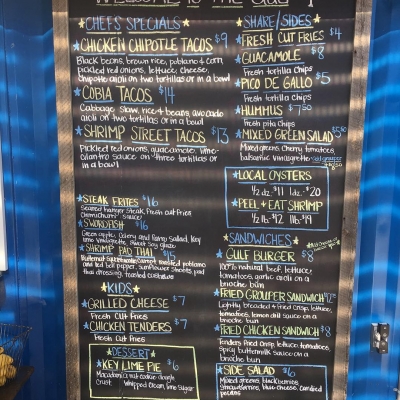 WELCOME TO THE
CHEFS SPECIALS
CHICKEN CHIPOTLE TACOS $9
Black beans, brown rice, poblano & corn,
pickled red onions, lettuce, cheese,
chipotle aioli on two tortillas or in a bowl
COBIA TACOS $14
Cabbage slaw, rice & beans, avocado
aioli on two tortillas or
in a bowl
SHRIMP STREET TACOS $13
Pickled red onions, guacamole, lime-
cilantro sauce on three tortillas or
in a bowl
STEAK FRITES $16
seared hanger steak, Fresh cut Fries
Chimichurri sauce
SWORDFISH $16
Green apple, celery and hemp salad, key
lime vinaigrette, sweet soy glaze
SHRIMP PAD THAI $15
Butternut squash, carrot, roasted poblano
and red bell pepper, sunflower shoots, pad
thai dressing, toasted cashews
KIDS
GRILLED CHEESE $7
Fresh Cut Fries
CHICKEN TENDERS $7
Fresh Cut Fries
DESSERT
KEY LIME PIE $6
Macadamia nut cookie dough
Crust. Whipped Cream, lime Sugar
SHARE/SIDES
FRESH CUT FRIES $4
GUACAMOLE $8
Fresh tortilla Chips
PICO DE GALLO $5
Fresh tortilla Chips
HUMMUS $7.50
Fresh pita Chips
MIXED GREEN SALAD $5.50
Mixed greens, Cherry tomatoes,
balsamic vinaigrette
LOCAL OYSTERS
1/2 dz. $11 1 dz. $20
PEEL & EAT SHRIMP
1/2 lb. $12 1 lb. $19
SANDWICHES
GULF BURGER $8
100% natural beef, lettuce,
tomatoes, garlic aioli on a
brioche bun
FRIED GROUPER SANDWICH
Lightly breaded & Fried Crisp, lettuce,
tomatoes, lemon dill sauce on a
brioche bun
FRIED CHICKEN SANDWICH $8
Tenders Fried Crisp, lettuce, tomatoes,
spicy buttermilk sauce on a
brioche bun
SIDE SALAD $6
Mixed greens, blackberries,
Strawberries, blue cheese, candied
pecans